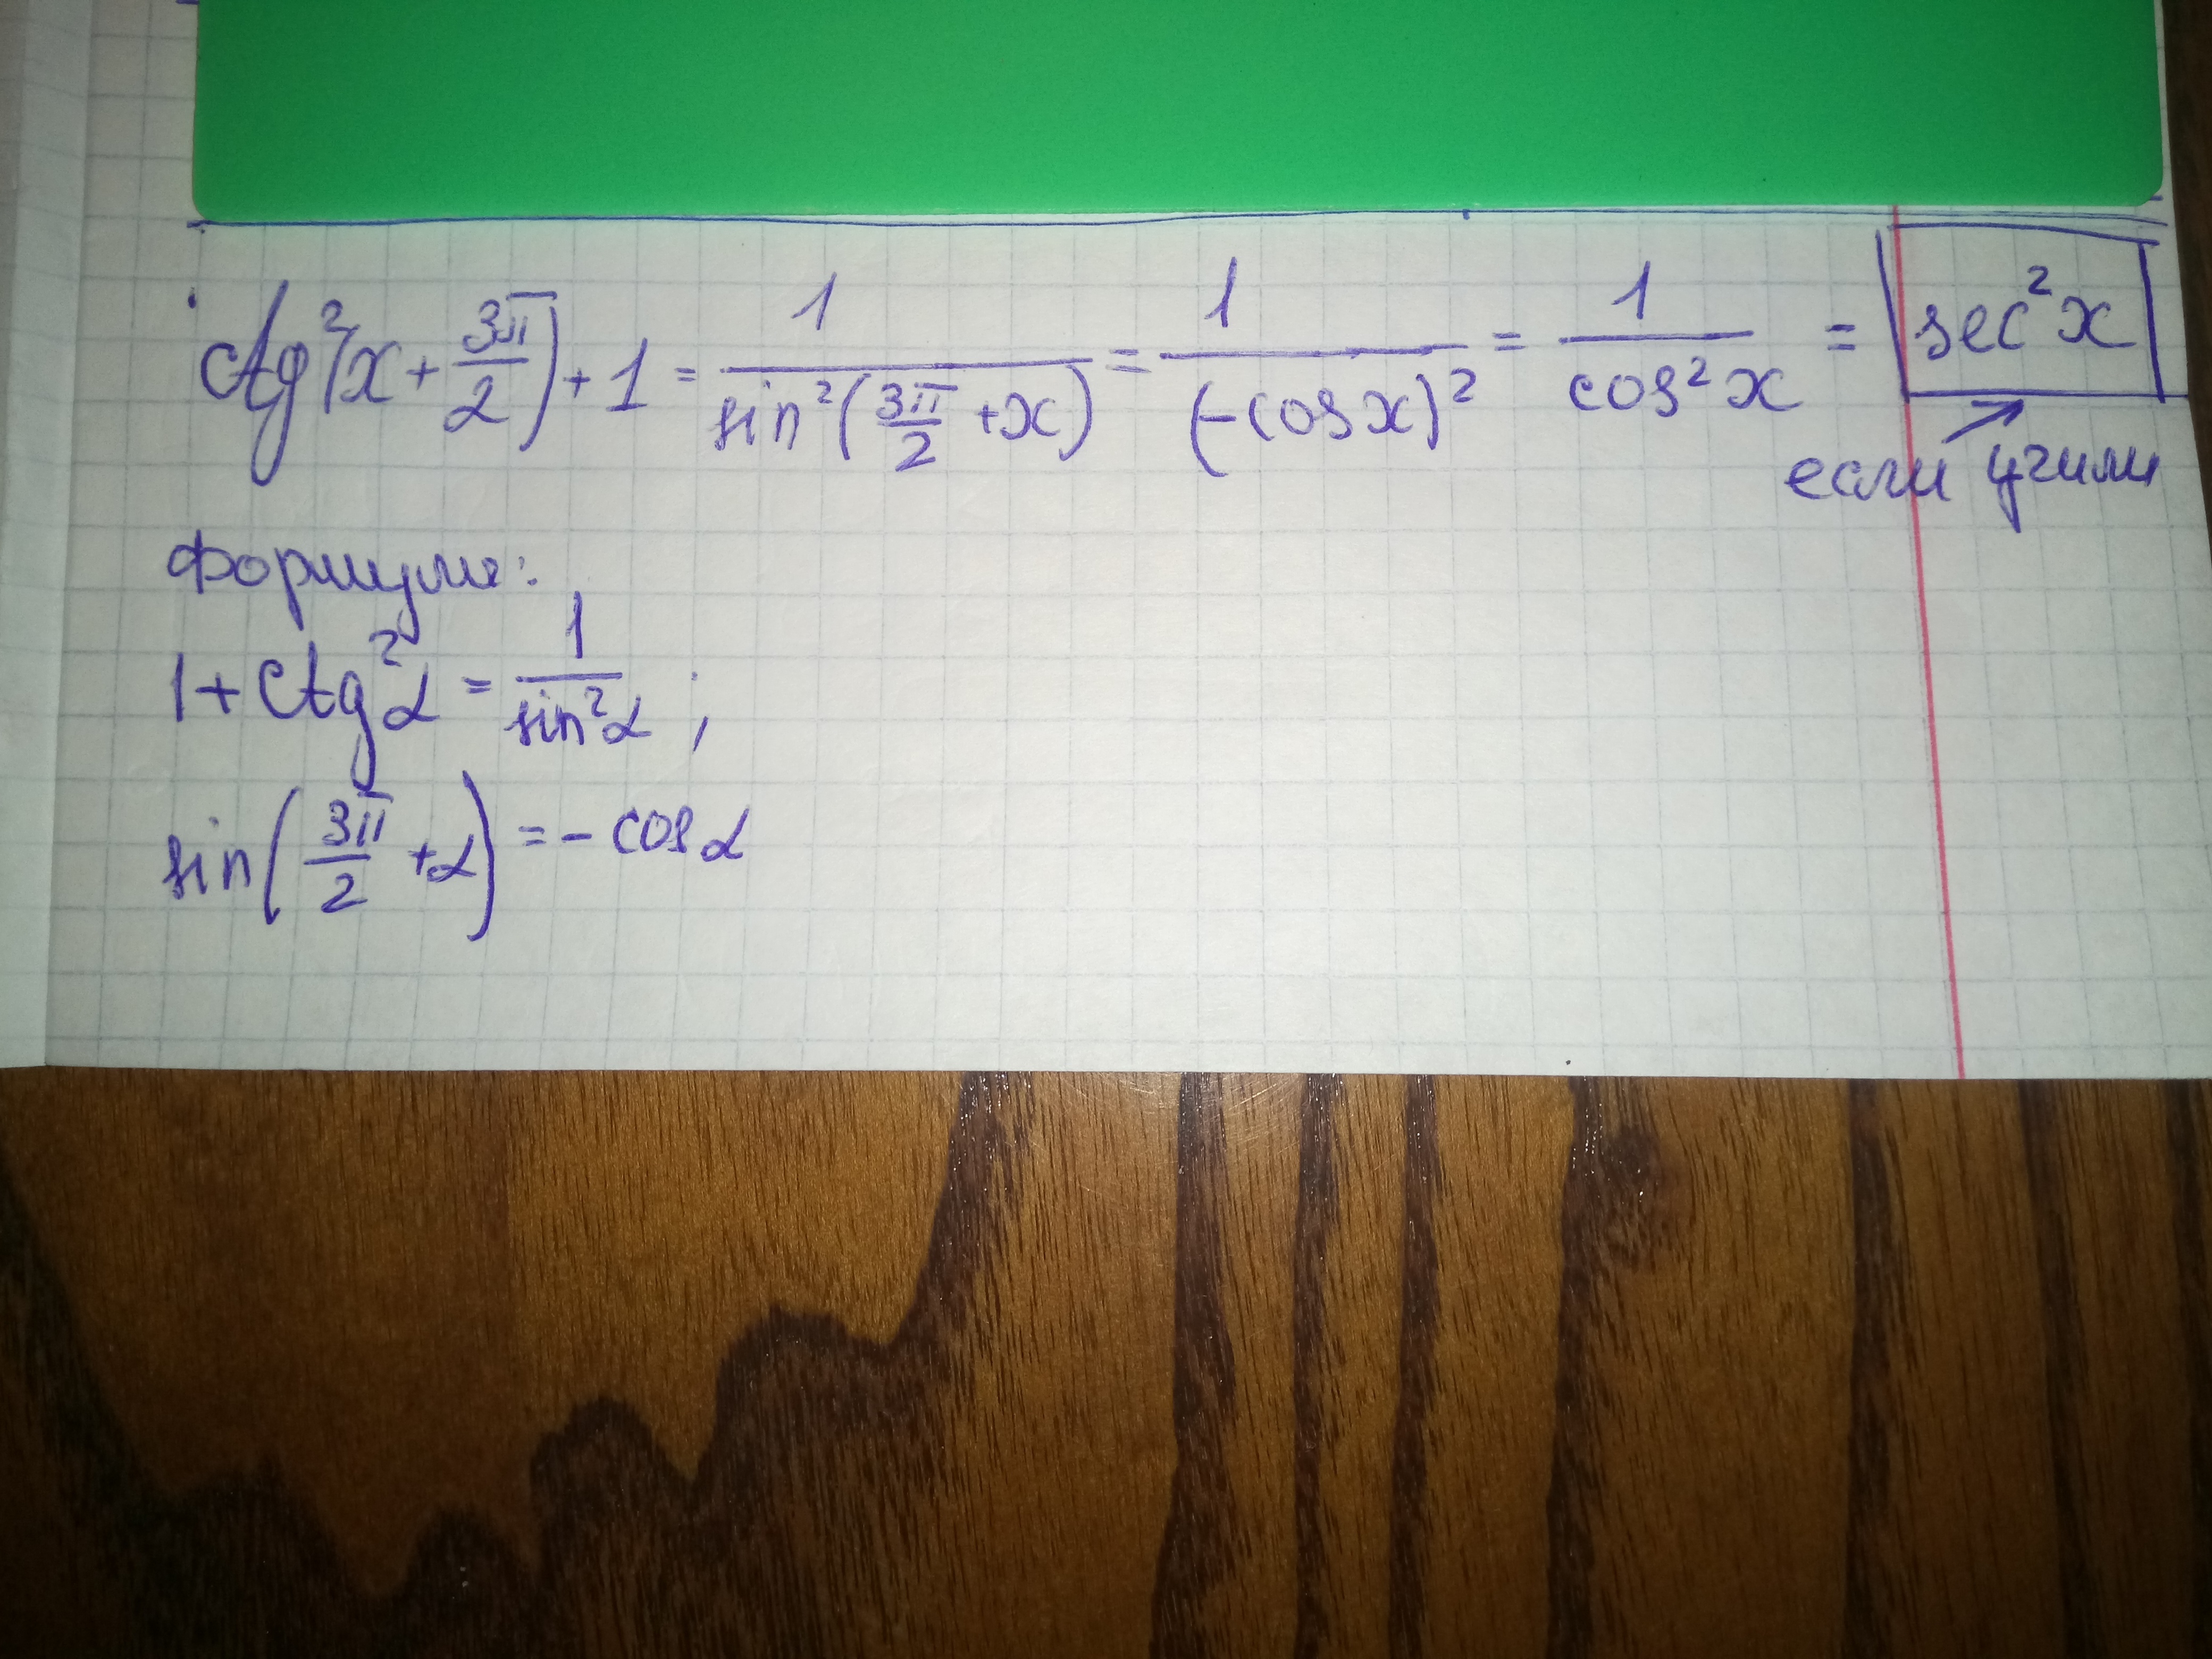 ctg²(x + 3π/2) + 1 = 1/sin²(3π/2 + x) = 1/(-cos x)² = 1/cos²x = sec²x
если учили
Формулы:
1 + ctg²α = 1/sin²α ;
sin(3π/2 + α) = - cos α